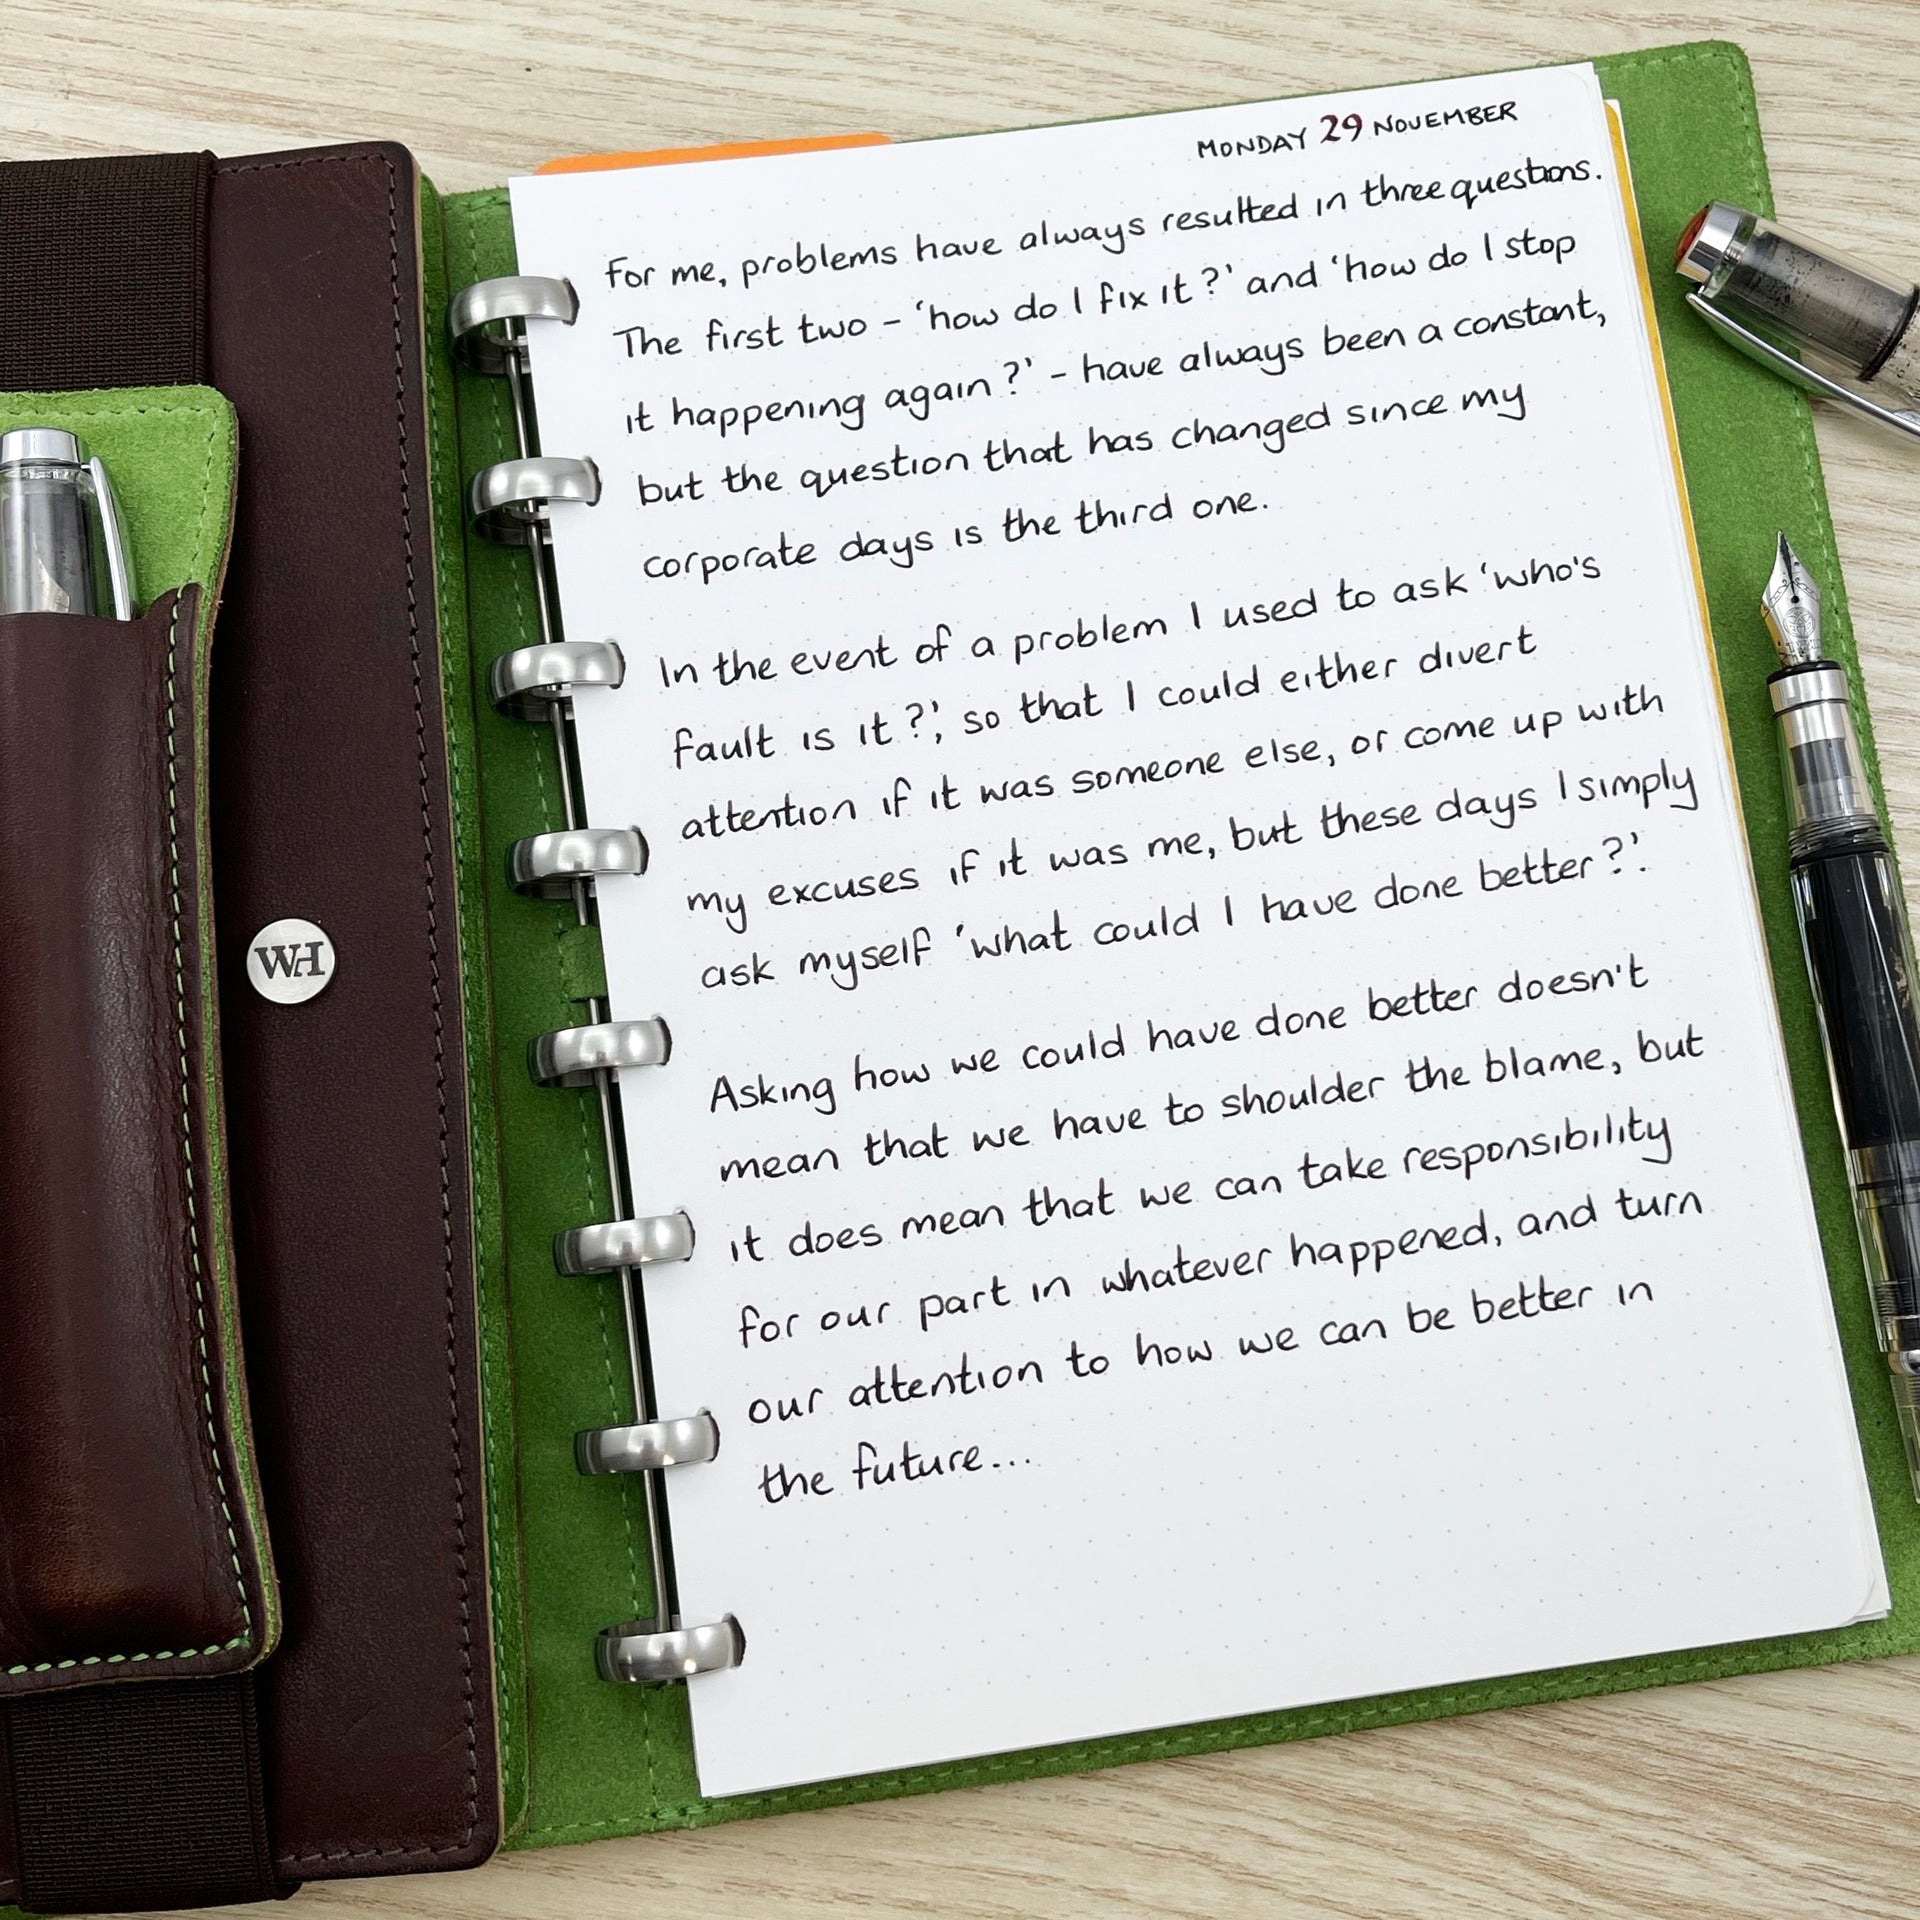 MONDAY 29 NOVEMBER
For me, problems have always resulted in three questions.
The first two – ‘how do I fix it?’ and ‘how do I stop
it happening again?’ – have always been a constant,
but the question that has changed since my
corporate days is the third one.
In the event of a problem I used to ask ‘who's
fault is it?’, so that I could either divert
attention if it was someone else, or come up with
my excuses if it was me, but these days I simply
ask myself ‘what could I have done better?’.
Asking how we could have done better doesn't
mean that we have to shoulder the blame, but
it does mean that we can take responsibility
for our part in whatever happened, and turn
our attention to how we can be better in
the future...
WH